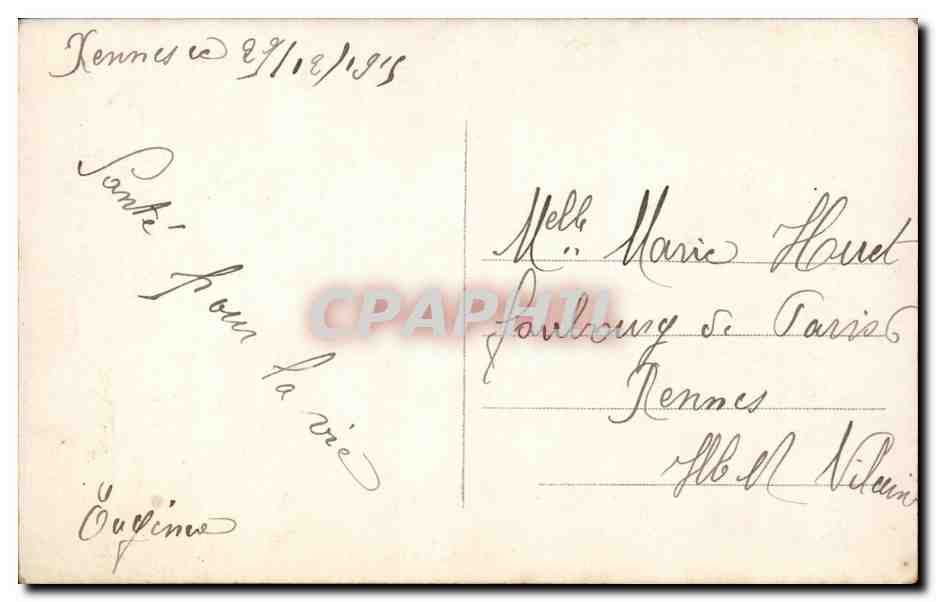 Rennes le 29/12/1915
Santé pour la vie
Eugénie
Melle Marie Huet
faubourg de Paris
Rennes
Vilaine
CPAPHIL